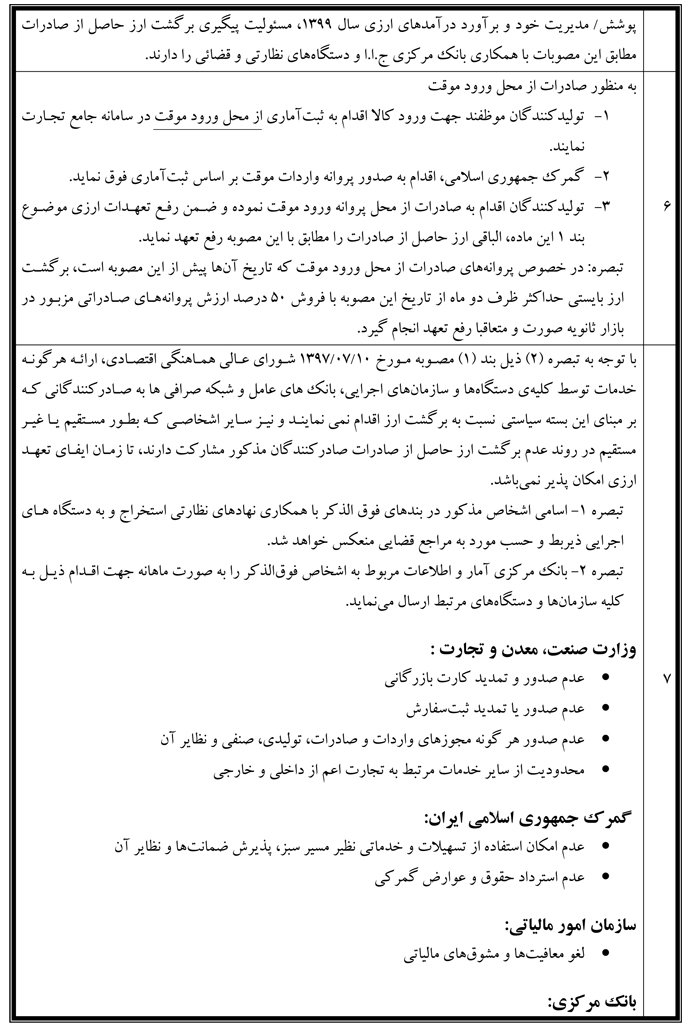 پوشش/ مدیریت خود و برآورد درآمدهای ارزی سال ۱۳۹۹، مسئولیت پیگیری برگشت ارز حاصل از صادرات
مطابق این مصوبات با همکاری بانک مرکزی ج.ا.ا و دستگاه‌های نظارتی و قضائی را دارند.
۶
به منظور صادرات از محل ورود موقت
۱- تولیدکنندگان موظفند جهت ورود کالا اقدام به ثبت‌آماری از محل ورود موقت در سامانه جامع تجارت
نمایند.
۲- گمرک جمهوری اسلامی، اقدام به صدور پروانه واردات موقت بر اساس ثبت‌آماری فوق نماید.
۳- تولیدکنندگان اقدام به صادرات از محل پروانه ورود موقت نموده و ضمن رفع تعهدات ارزی موضوع
بند ۱ این ماده، الباقی ارز حاصل از صادرات را مطابق با این مصوبه رفع تعهد نماید.
تبصره: در خصوص پروانه‌های صادرات از محل ورود موقت که تاریخ آن‌ها پیش از این مصوبه است، برگشت
ارز بایستی حداکثر ظرف دو ماه از تاریخ این مصوبه با فروش ۵۰ درصد ارزش پروانه‌های صادراتی مزبور در
بازار ثانویه صورت و متعاقبا رفع تعهد انجام گیرد.
۷
با توجه به تبصره (۲) ذیل بند (۱) مصوبه مورخ ۱۳۹۷/۰۷/۱۰ شورای عالی هماهنگی اقتصادی، ارائه هرگونه
خدمات توسط کلیه‌ی دستگاه‌ها و سازمان‌های اجرایی، بانک های عامل و شبکه صرافی ها به صادرکنندگانی که
بر مبنای این بسته سیاستی نسبت به برگشت ارز اقدام نمی نمایند و نیز سایر اشخاصی که بطور مستقیم یا غیر
مستقیم در روند عدم برگشت ارز حاصل از صادرات صادرکنندگان مذکور مشارکت دارند، تا زمان ایفای تعهد
ارزی امکان پذیر نمی‌باشد.
تبصره ۱- اسامی اشخاص مذکور در بندهای فوق الذکر با همکاری نهادهای نظارتی استخراج و به دستگاه های
اجرایی ذیربط و حسب مورد به مراجع قضایی منعکس خواهد شد.
تبصره ۲- بانک مرکزی آمار و اطلاعات مربوط به اشخاص فوق‌الذکر را به صورت ماهانه جهت اقدام ذیل به
کلیه سازمان‌ها و دستگاه‌های مرتبط ارسال می‌نماید.
وزارت صنعت، معدن و تجارت :
• عدم صدور و تمدید کارت بازرگانی
• عدم صدور یا تمدید ثبت‌سفارش
• عدم صدور هر گونه مجوزهای واردات و صادرات، تولیدی، صنفی و نظایر آن
• محدودیت از سایر خدمات مرتبط به تجارت اعم از داخلی و خارجی
گمرک جمهوری اسلامی ایران:
• عدم امکان استفاده از تسهیلات و خدماتی نظیر مسیر سبز، پذیرش ضمانت‌ها و نظایر آن
• عدم استرداد حقوق و عوارض گمرکی
سازمان امور مالیاتی:
• لغو معافیت‌ها و مشوق‌های مالیاتی
بانک مرکزی: